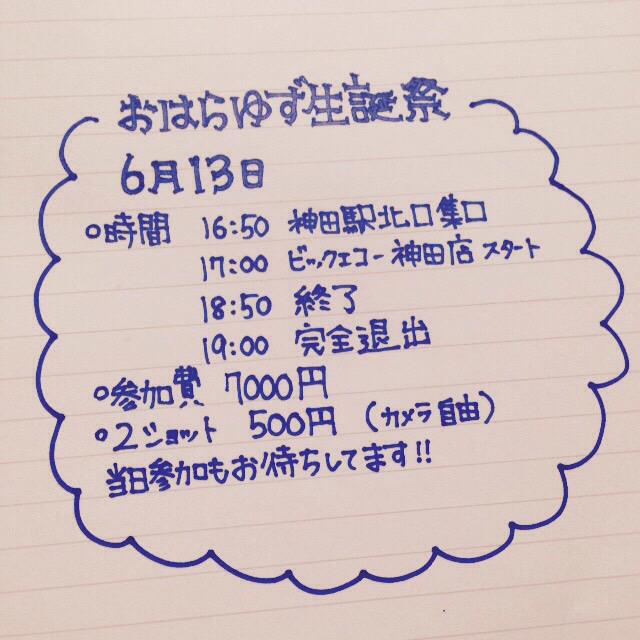 おはらゆず生誕祭
6月13日
○時間 16:50 神田駅北口集口
17:00 ビックエコー神田店スタート
18:50 終了
19:00 完全退出
○参加費 7000円
○2ショット 500円 (カメラ自由)
当日参加もお待ちしてます!!